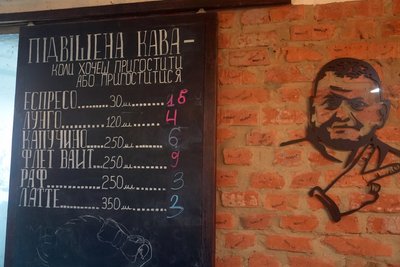 ПІДВІШЕНА КАВА -
КОЛИ ХОЧЕШ ПРИГОСТИТИ
АБО ПРИГОСТИТИСЯ
ЕСПРЕСО 30 мл 18
ЛУНГО 120 мл 4
КАПУЧИНО 250 мл 6
ФЛЕТ ВАЙТ 250 мл 9
РАФ 250 мл 3
ЛАТТЕ 350 мл 3